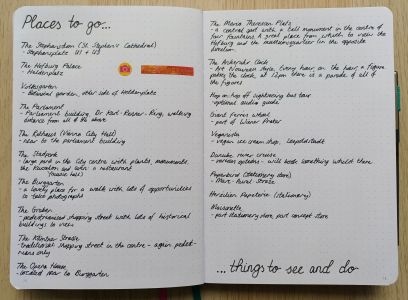 Places to go...
The Stephansdom (St. Stephen's Cathedral)
- Stephansplatz U1 + U3
The Hofburg Palace
- Heldenplatz
Volksgarten
- Botanical garden, other side of Heldenplatz
The Parliament
- Parliament building Dr. Karl-Renner-Ring, walking
distance from all of the above
The Rathaus (Vienna City Hall)
- near to the parliament building
The Stadtpark
- large park in the city centre with plants, monuments,
the Kursalon and also a restaurant
The Burggarten
- a lovely place for a walk with lots of opportunities
to take photographs
The Graben
- pedestrianised shopping street with lots of historical
buildings to view
The Kärntner Straße
- traditional shopping street in the centre - again pedest-
rians only
The Opera House
- located near to Burggarten
The Maria Theresien Platz
- a central spot with a tall monument in the centre of
four fountains. A great place from which to view the
Hofburg and the museumsquartier (in the opposite
direction)
The Ankeruhr Clock
- Art Nouveau style. Every hour on the hour a figure
passes the clock, at 12pm there is a parade of all of
the figures
Hop on hop off sightseeing bus tour
- optional audio guide
Giant ferris wheel
- part of Wiener Prater
Veganista
- vegan ice cream shop, Leopoldstadt
Danube river cruise
- various options - will book something whilst there
Paperbird (stationery store)
Herzilein Papeterie (stationery)
- part stationery store, part concept store
...things to see and do